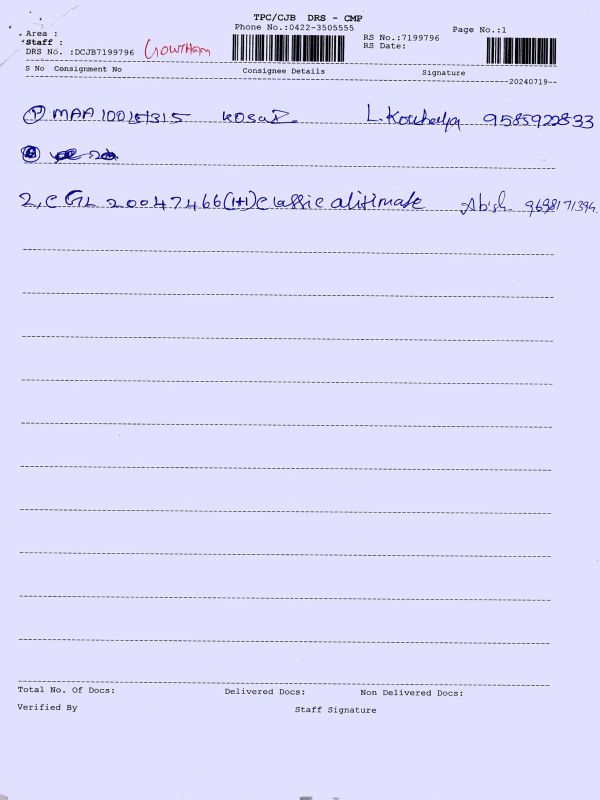 TPC/CJB DRS - CMP
Phone No.:0422-3505555
Page No.:1
Area :
Staff : GOWTHAM
RS No.:7199796
RS Date:
DRS No. :DCJB7199796
S No Consignment No Consignee Details Signature
20240719
1) MAA 315 9585922833
2, CGL 20047466(1+1) classic alitimate 9698171394
Total No. Of Docs: Delivered Docs: Non Delivered Docs:
Verified By Staff Signature